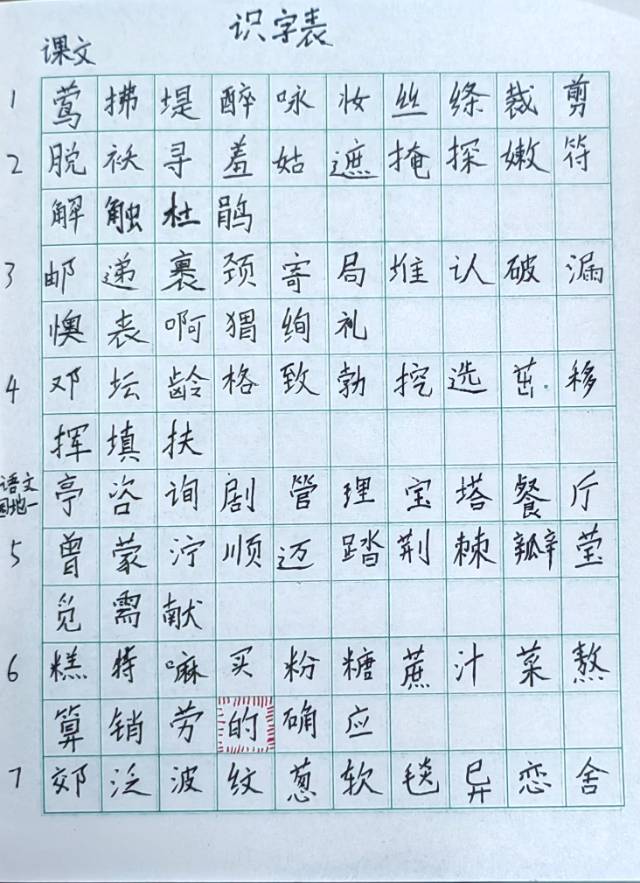 识字表
课文
1 莺 拂 堤 醉 咏 妆 丝 绦 裁 剪
2 脱 袄 寻 羞 姑 遮 掩 探 嫩 符
解 触 杜 鹃
3 邮 递 裹 颈 寄 局 堆 认 破 漏
懊 表 啊 猬 绚 礼
4 邓 坛 龄 格 致 勃 挖 选 茁 移
挥 填 扶
语文园地一 亭 咨 询 剧 管 理 宝 塔 餐 厅
5 曾 蒙 泞 顺 迈 踏 荆 棘 瓣 莹
觅 需 献
6 糕 特 嘛 买 粉 糖 蔗 汁 菜 熬
算 销 劳 的 确 应
7 郊 泛 波 纹 葱 软 毯 异 恋 舍